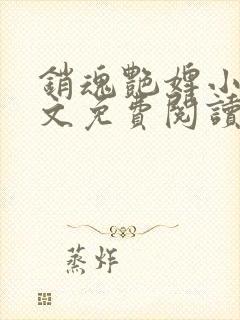 銷魂艷婢小
文免費閱讀
蒸炸